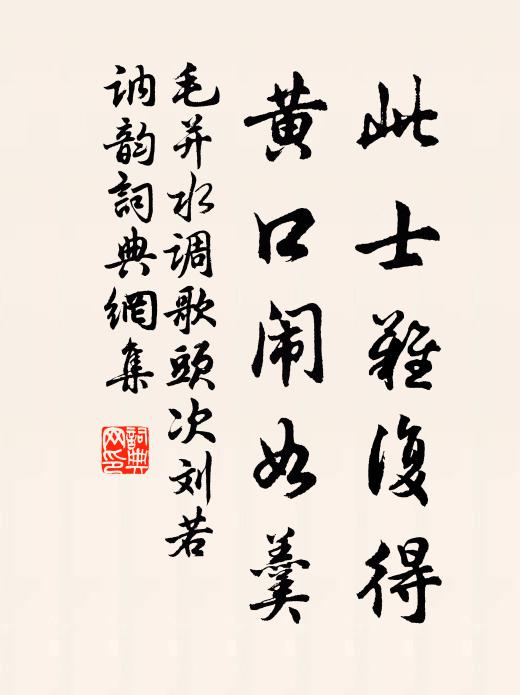 此士难復得
黄口闹如羹
毛并水调歌頭次刘若
讷韵詞典網集
詞典网印